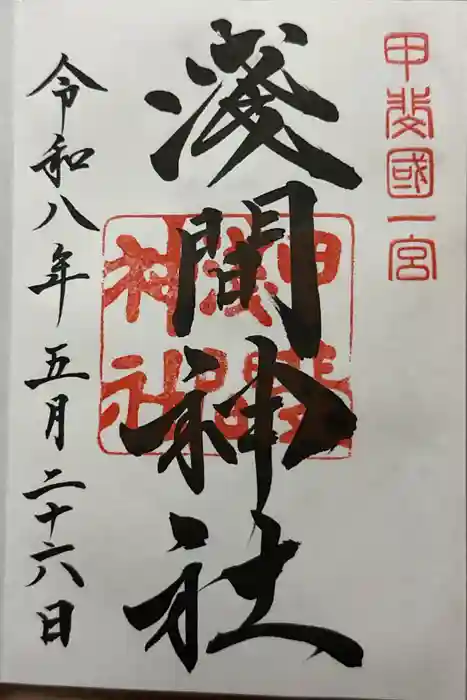 甲斐國一宮
淺間神社
甲斐
淺間
神社
令和八年五月二十六日